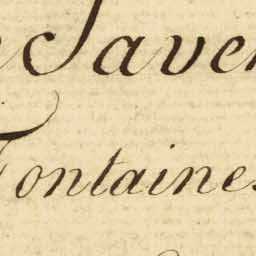 e Saver
Fontaines